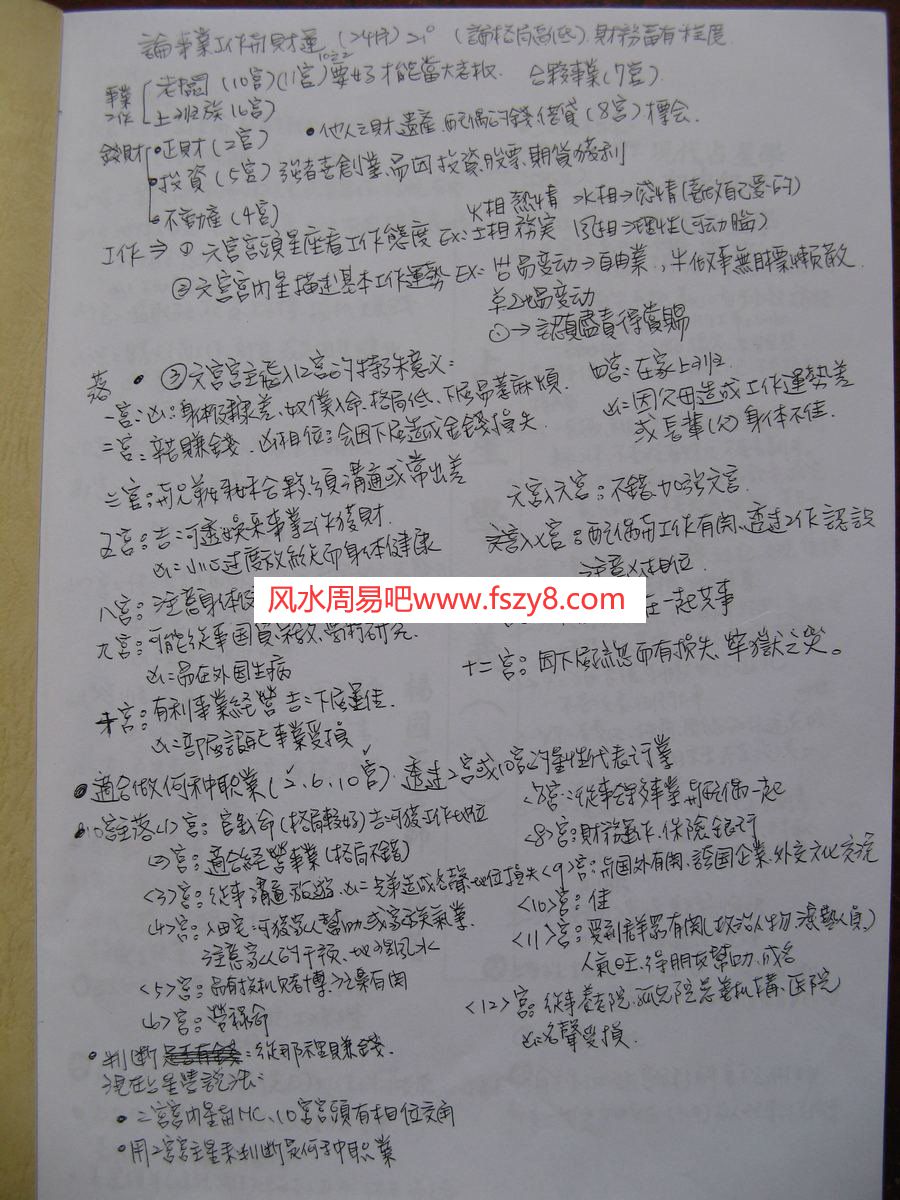 論事業工作和財運 (24時) (論格局高低) 財務富有程度
事業工作 老闆 (10宮)(11宮) 要好才能當大老板. 合夥事業(7宮)
上班族 (6宮)
錢財 • 正財 (2宮) • 他人之財 遺產, 配偶的錢, 借貸 (8宮) 標会.
• 投資 (5宮) 強者喜創業, 易因投資, 股票, 期貨獲利
• 不動產 (4宮) 火相熱情 水相→感情(喜做自己愛的)
工作⇒ ① 六宮宮頭星座看工作態度 EX: 土相務実 風相→理性(可动腦)
② 六宮宮內星描述基本工作運勢 EX: ♅易变动⇒自由業,
单 易变动
☉→認真盡責得賞賜
落 • ③ 六宮宮主落入12宮的特殊意义:
一宮: 凶: 身体健康差、奴僕入命、格局低、下屬易惹麻煩.
四宮: 在家上班
凶=因父母造成工作運勢差
或長輩(父)身体不佳.
二宮: 辛苦賺錢. 凶相位: 会因下屬造成金錢損失.
三宮: 和兄弟姊妹合夥, 須溝通或常出差
六宮入六宮: 不錯, 加強六宮.
五宮: 吉: 可透過娛乐事業工作發財.
凶: 小心过度放縱而身体健康
六宮入七宮: 配偶和工作有関、透过工作認識
注意凶相位.
八宮: 注意身体
在一起共事
风水周易吧www.fszy8.com
九宮: 可能從事国貿、宗教、学術研究.
凶=易在外国生病
十二宮: 因下屬 而有損失, 牢獄之災。
十宮: 有利事業経營 吉=下屬佳.
凶=部屬 事業受損
• 適合做何种职業(2、6、10宮). 透过2宮或10宮的星性代表行業
• 10宮主落<1>宮: 官 命(格局較好) 吉=可獲工作地位
<7>宮: 從事合夥事業, 與配偶一起
<2>宮: 適合経營事業(格局不錯)
<8>宮: 財務運作、保險、銀行
<3>宮: 從事溝通、旅遊、凶=兄弟造成名聲、地位損失
<9>宮: 與国外有関、跨国企業、外交文化交流
<4>宮: 入田宅: 可獲家人幫助或家族氣業.
注意家人的干預、地理風水
<10>宮: 佳
<11>宮: 受到群眾有関(政治人物、演藝人員)
人氣旺、得朋友幫助、成名
<5>宮: 易有投机賭博、 有関
<6>宮: 勞碌命
<12>宮: 從事養老院、孤兒院、慈善机構、医院
凶=名聲受損.
• 判断: 從那裡賺錢.
現在占星學說法:
• 二宮宮內星與MC、10宮宮頭有相位交角
• 用2宮宮主星來判断是何种职業